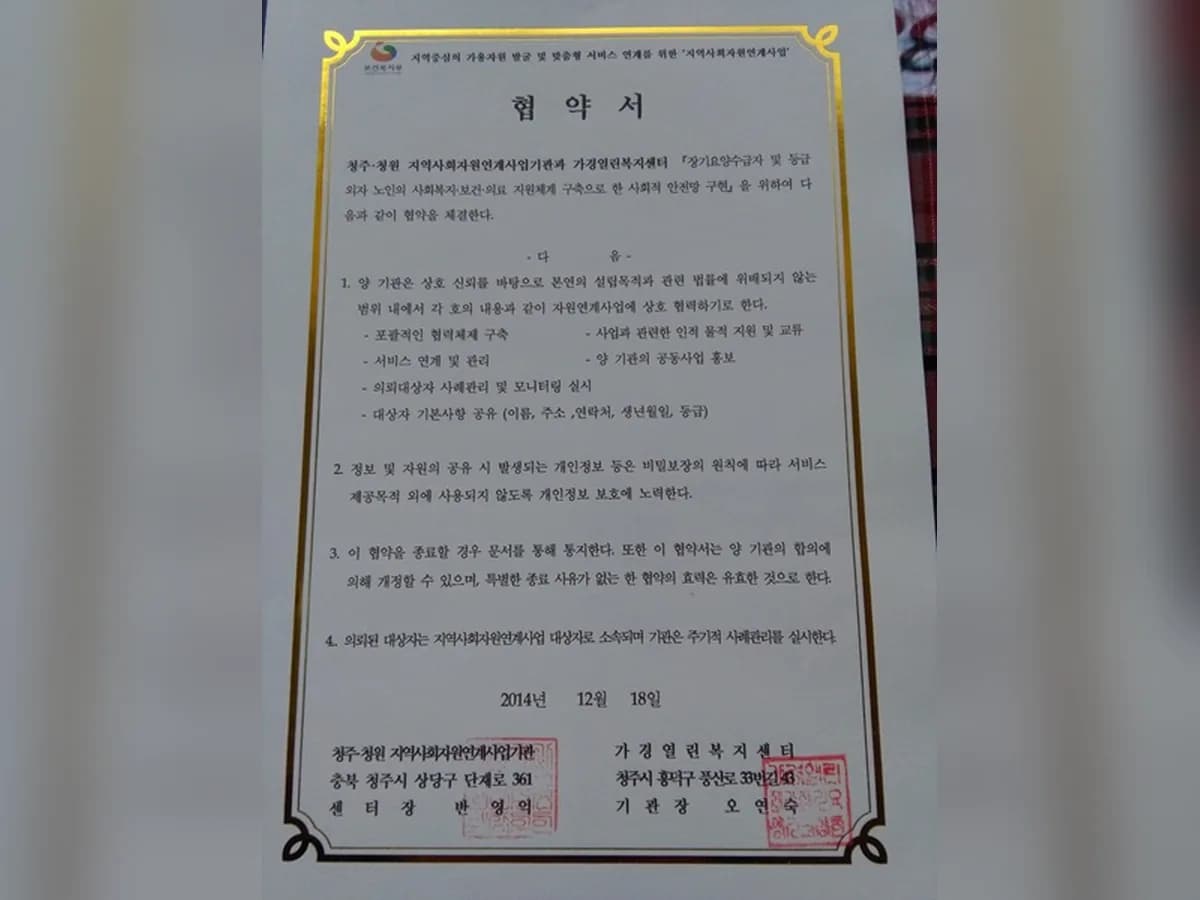 보건복지부
지역중심의 가용자원 발굴 및 맞춤형 서비스 연계를 위한 '지역사회자원연계사업'
협 약 서
청주·청원 지역사회자원연계사업기관과 가경열린복지센터 『장기요양수급자 및 등급
외자 노인의 사회복지·보건·의료 지원체계 구축으로 한 사회적 안전망 구현』을 위하여 다
음과 같이 협약을 체결한다.
- 다 음 -
1. 양 기관은 상호 신뢰를 바탕으로 본연의 설립목적과 관련 법률에 위배되지 않는
범위 내에서 각 호의 내용과 같이 자원연계사업에 상호 협력하기로 한다.
- 포괄적인 협력체제 구축 - 사업과 관련한 인적 물적 지원 및 교류
- 서비스 연계 및 관리 - 양 기관의 공동사업 홍보
- 의뢰대상자 사례관리 및 모니터링 실시
- 대상자 기본사항 공유 (이름, 주소 ,연락처, 생년월일, 등급)
2. 정보 및 자원의 공유 시 발생되는 개인정보 등은 비밀보장의 원칙에 따라 서비스
제공목적 외에 사용되지 않도록 개인정보 보호에 노력한다.
3. 이 협약을 종료할 경우 문서를 통해 통지한다. 또한 이 협약서는 양 기관의 합의에
의해 개정할 수 있으며, 특별한 종료 사유가 없는 한 협약의 효력은 유효한 것으로 한다.
4. 의뢰된 대상자는 지역사회자원연계사업 대상자로 소속되며 기관은 주기적 사례관리를 실시한다.
2014년 12월 18일
청주·청원 지역사회자원연계사업기관 가 경 열 린 복 지 센 터
충북 청주시 상당구 단재로 361 청주시 흥덕구 풍산로 33번길 43
센 터 장 반 영 억 기 관 장 오 연 숙